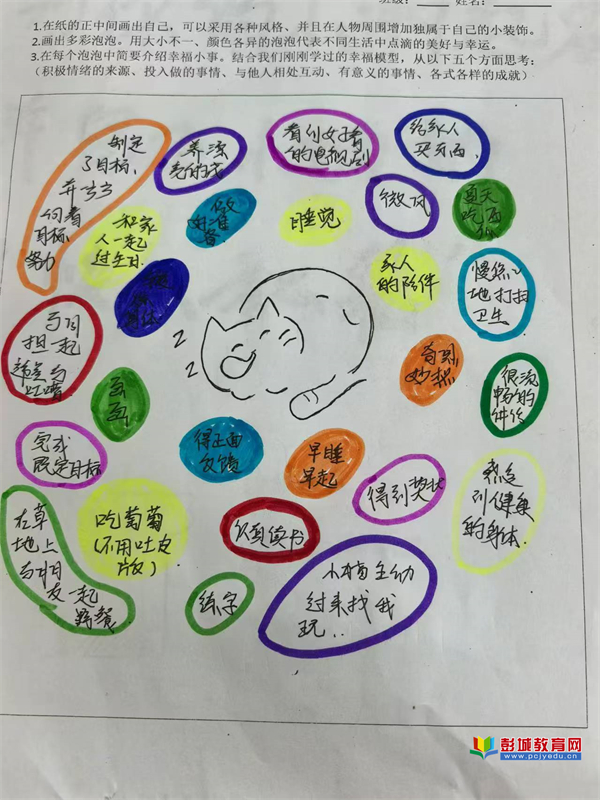 班级：　　姓名：
1.在纸的正中间画出自己，可以采用各种风格、并且在人物周围增加独属于自己的小装饰。
2.画出多彩泡泡。用大小不一、颜色各异的泡泡代表不同生活中点滴的美好与幸运。
3.在每个泡泡中简要介绍幸福小事。结合我们刚刚学过的幸福模型，从以下五个方面思考：
（积极情绪的来源、投入做的事情、与他人相处互动、有意义的事情、各式各样的成就）
制定
了目标，
并
向着
目标
努力
养漂
看到好看
的电视剧
给家人
买东西，
和家
人一起
过生日.
做
准
备
睡觉
微风
夏天
吃西
瓜
家人
的陪伴
慢悠心
地打扫
卫生
身体
与同
担一起
与
吐槽
奇思
妙想
很流
畅的
画
画
得正面
反馈
早睡
早起
完成
既定目标
得到奖状
感受
到健康
的身体.
在草
地上
与朋
友一起
野餐
吃葡萄
（不用吐皮
版）
认真读书
练字
小猫主动
过来找我
玩..
z
z
彭城教育网
www.pcjyedu.cn